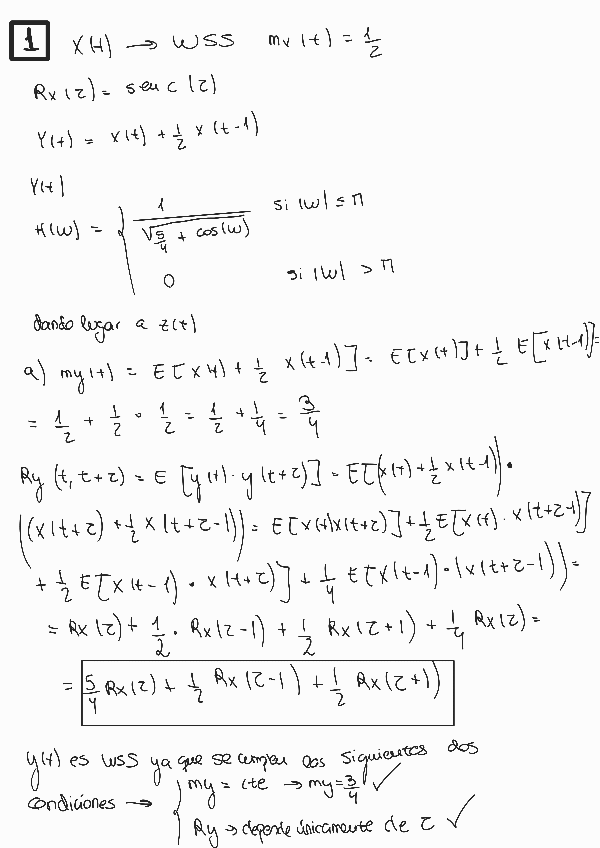 1 X(t) → WSS mx(t) = 1/2
Rx(τ) = senc(τ)
Y(t) = x(t) + 1/2 x(t-1)
Y(t)
H(w) = { 1/√(5/4 + cos(w)) si |w| ≤ π
0 si |w| > π
dando lugar a z(t)
a) my(t) = E[x(t) + 1/2 x(t-1)] = E[x(t)] + 1/2 E[x(t-1)] =
= 1/2 + 1/2 · 1/2 = 1/2 + 1/4 = 3/4
Ry(t, t+τ) = E[y(t) · y(t+τ)] = E[(x(t) + 1/2 x(t-1)) ·
((x(t+τ) + 1/2 x(t+τ-1)) = E[x(t)x(t+τ)] + 1/2 E[x(t) · x(t+τ-1)]
+ 1/2 E[x(t-1) · x(t+τ)] + 1/4 E[x(t-1) · (x(t+τ-1)) =
= Rx(τ) + 1/2 · Rx(τ-1) + 1/2 Rx(τ+1) + 1/4 Rx(τ) =
= 5/4 Rx(τ) + 1/2 Rx(τ-1) + 1/2 Rx(τ+1)
y(t) es WSS ya que se cumplen las siguientes dos
condiciones → { my = cte → my = 3/4 ✓
Ry → depende únicamente de τ ✓